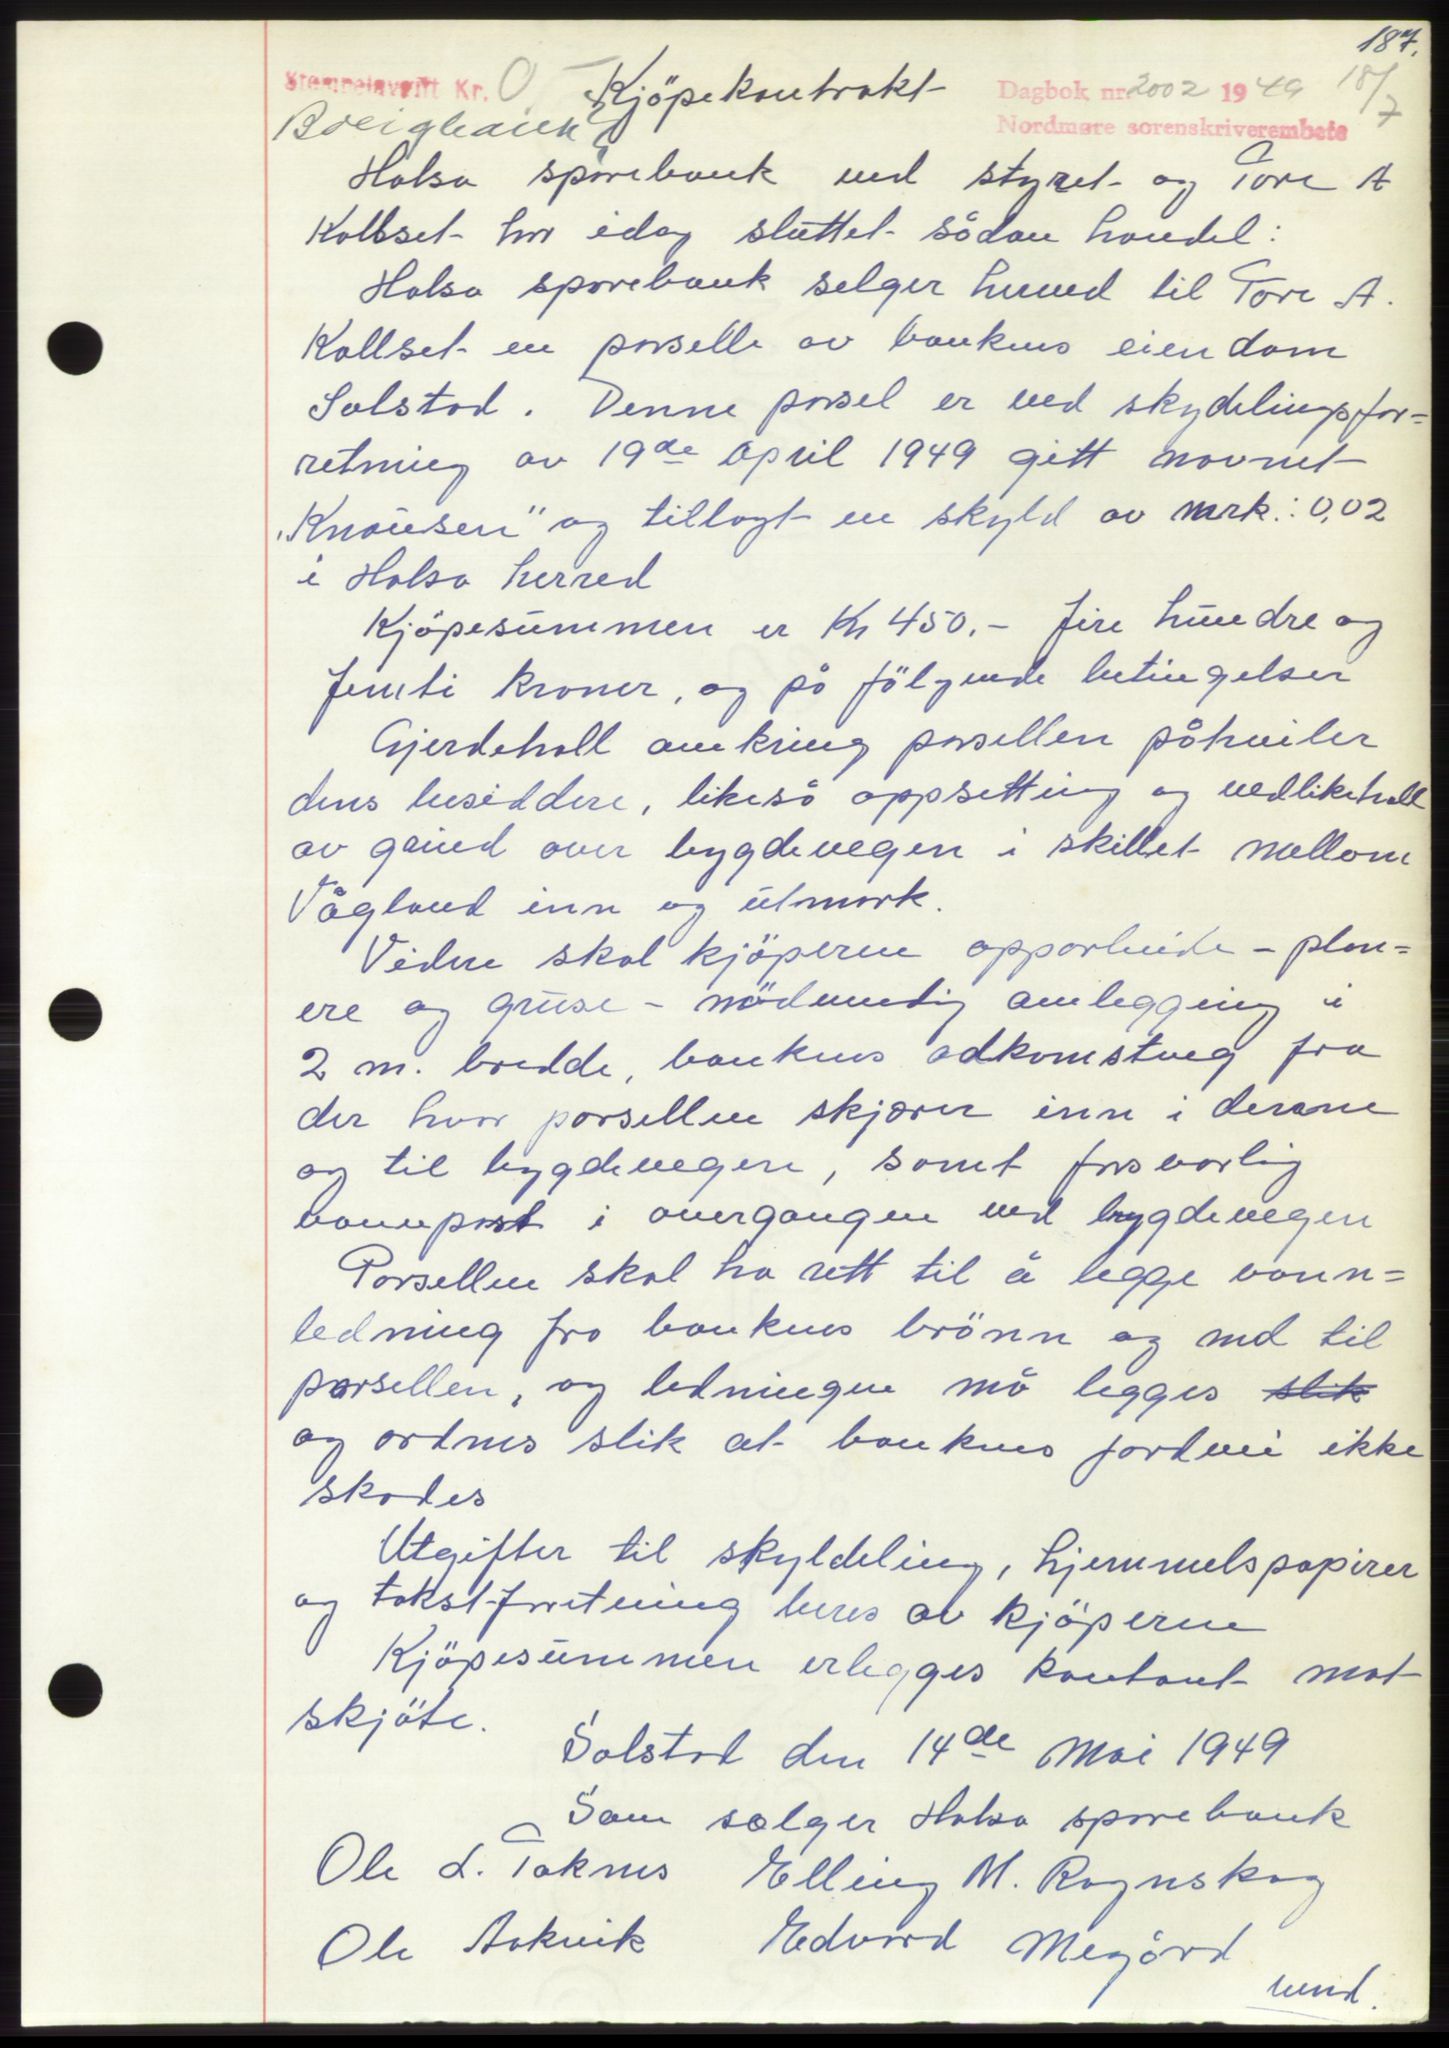 187.
Stempelavgift Kr. 0 Kjöpekontrakt Dagbok nr. 2002 1949 18/7
Nordmøre sorenskriverembete
Halsa sparebank ved styret og Tore A
Kallset har idag sluttet sådan handel:
Halsa sparebank selger herved til Tore A.
Kallset en parselle av bankens eiendom
Solstad. Denne parsel er ved skydelingsfor=
retning av 19de April 1949 gitt navnet
"Knausen" og tillagt en skyld av mrk.: 0,02
i Halsa herred
Kjöpesummen er Kr 450.- fire hundre og
femti kroner, og på fölgende betingelser
Gjerdehall omkring parsellen påhviler
dens besiddere, likeså oppsetting og vedlikehall
av grind over bygdevegen i skillet mellom
Vågland inn og utmark.
Videre skal kjöperen opparbeide - plan=
ere og gruse - nödvendig omlegging i
2 m. bredde, bankens adkomstveg fra
der hvor parsellen skjærer inn i denne
og til bygdevegen, samt forsvarlig
vannpost i overgangen ved bygdevegen
Parsellen skal ha rett til å legge vann=
ledning fra bankens brönn og ned til
parsellen, og ledningen må legges slik
og ordnes slik at bankens jordvei ikke
skades
Utgifter til skyldeling, hjemmelspapirer
og takstforretning beres av kjöperen
Kjöpesummen erlegges kontant mot
skjöte.
Solstad den 14de Mai 1949
Som selger Halsa sparebank
Ole L. Taknes Elling M. Rognskog
Ole Aakvik Edvard Megård
vend.